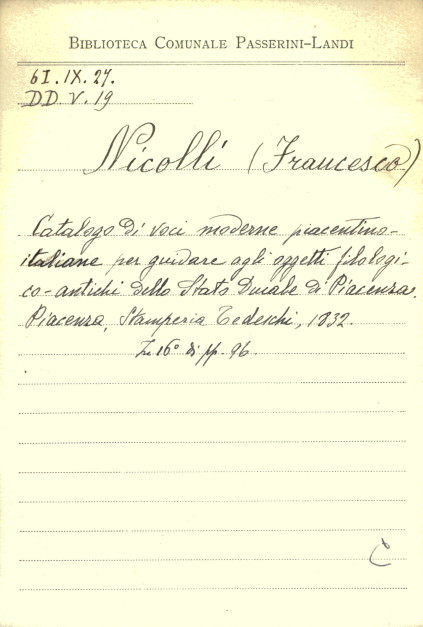 BIBLIOTECA COMUNALE PASSERINI-LANDI
6I.IX.27.
DD.V.19
Nicolli (Francesco)
Catalogo di voci moderne piacentino-
italiane per guidare agli oggetti filologi-
co-antichi dello Stato Ducale di Piacenza.
Piacenza, Stamperia Tedeschi, 1832.
In 16° di pp. 96.